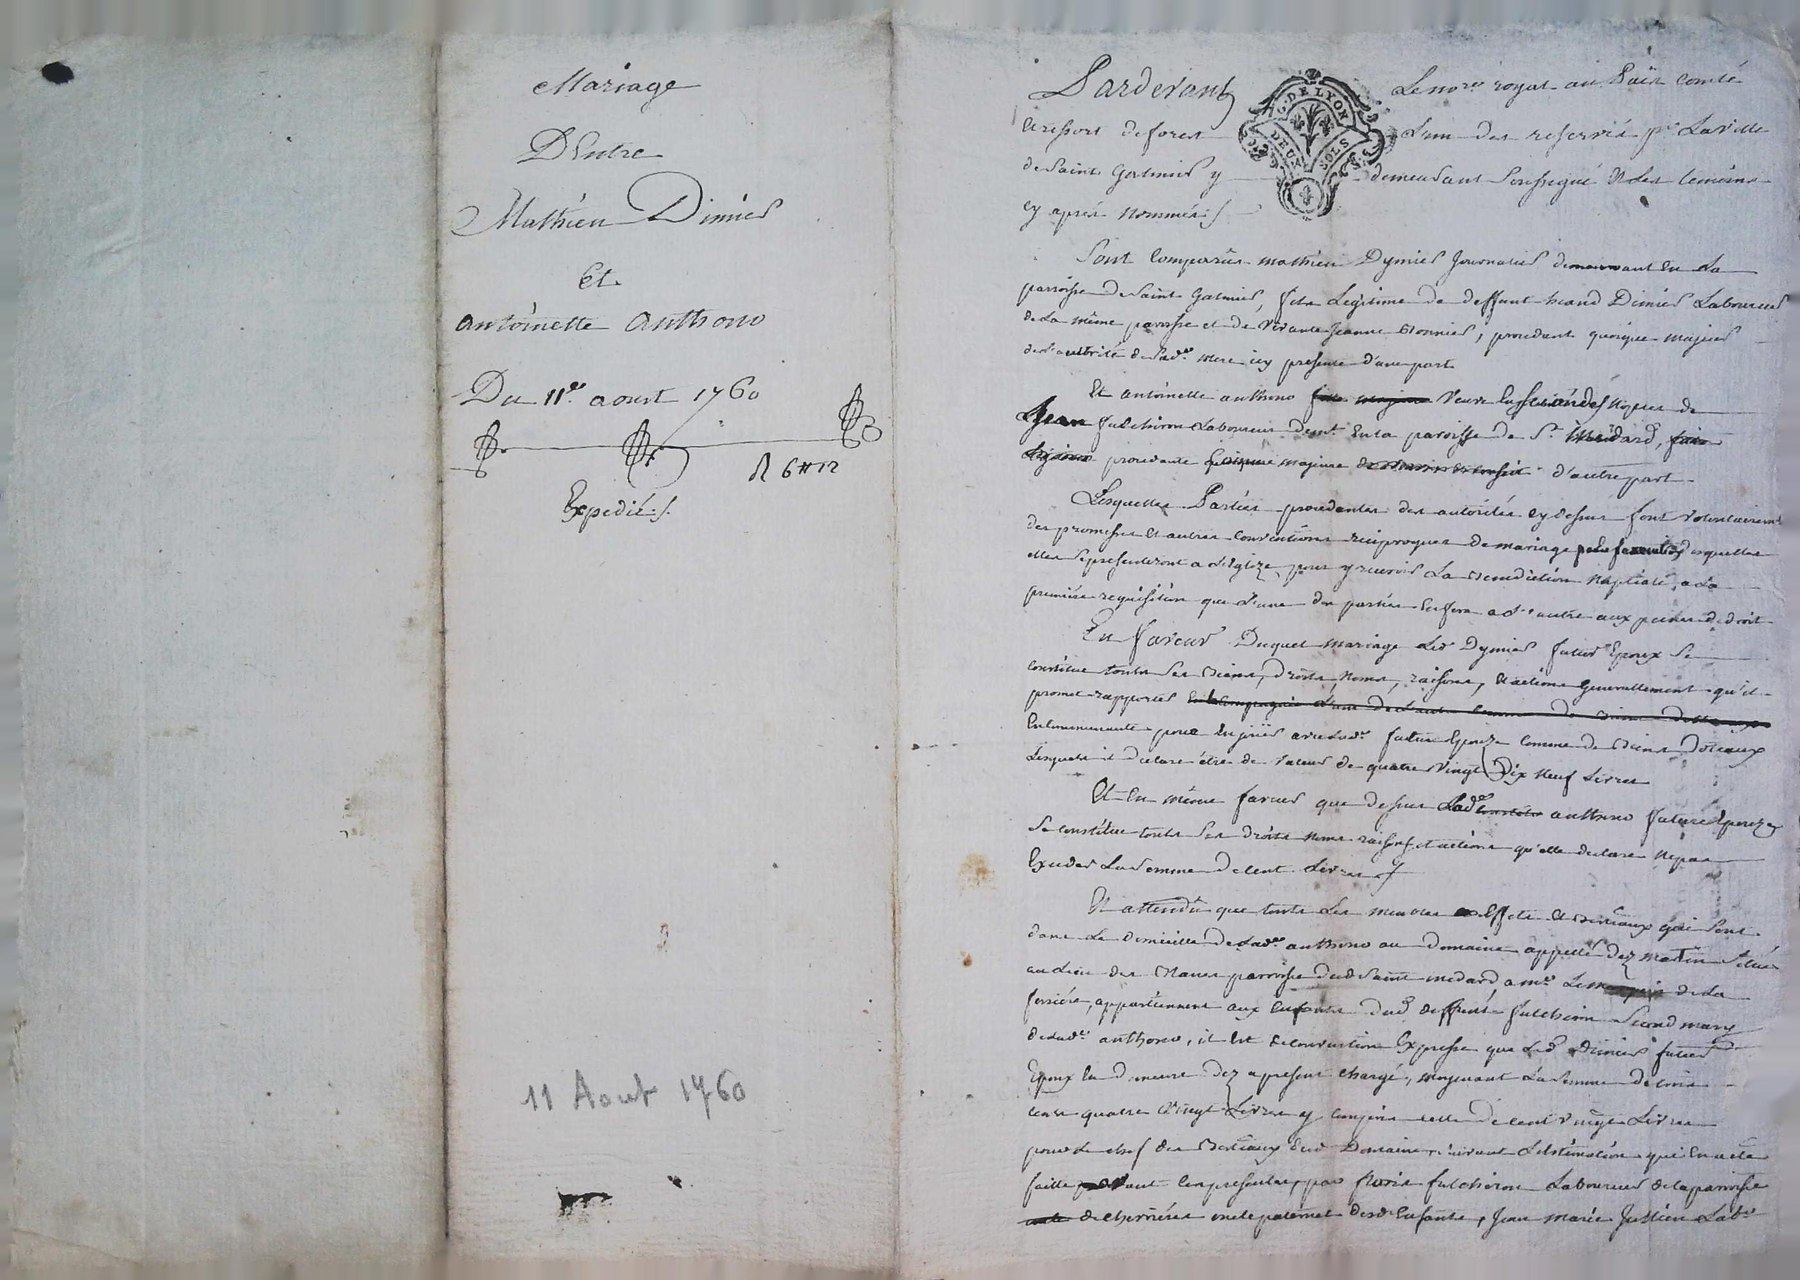 Mariage
D'Entre
Mathieu Dimier
Et
antoinette anthono
Du 11e. aoust 1760
R 6# 12
Expedié ./.
11 Aout 1760
Pardevant Le nore. royal au Païs comté
G. DE LYON
DEUX SOLS
et ressort de forest L'un des reservés pr. La ville
de Saint Galmier y demeurant soussigné et les temoins
cy aprés nommés ./.
Sont comparûs mathieu Dymier Journalier demeurant en La
parroisse de Saint Galmier, fils Legitime de deffunt Dimier Laboureur
de La même parroisse et de vivante Jeanne Bonnier, procedant quoique majeur
de l'authorité de Sade. mere icy presente d'une part
Et antoinette anthono veuve en secondes Nopces de
Jean fulchiron Laboureur demt. en la paroisse de St. Medard,
procedante comme majeure d'autre part
Lesquelles Parties procedantes des autorités cy dessus font volontairement
des promesses et autres conventions reciproques de mariage desquelles
elles se presenteront a L'Eglize pour y recevoir La Benediction Nuptiale, a La
premiére requisition que L'une des parties en fera a L'autre aux peines de droit
En faveur Duquel mariage Led Dymier futur Epoux se
constitue touts ses Biens, droits, Noms, raisons, et actions Generallement qu'il
promet rapporter
en communauté pour en joüir avec lade. future Epouze comme de Biens Dotaux
Lesquels il declare étre de valeur de quatre vingt Dix neuf Livres
Et en même faveur que dessus Lade. anthono future Epouze
se constitue touts ses droits noms raisons et actions qu'elle declare Ne pas
Exceder La somme de cent Livres ./.
Et attendû que touts Les meubles Effets et Bestiaux qui sont
dans Le domicille de Lade. anthono au domaine appellé dez martin situé
au Lieu des paroisse dud Saint medard a mr. Le de La
ferriére, appartiennent aux Enfants dud deffunt fulchiron second mary
de Lade. anthono, il est de convention Expresse que Led Dimier futur
Epoux en demeure dez a present chargé, moyenant La somme de trois
cens quatre vingt Livres y compris celle de cent vingt Livres
pour Le chef des Bestiaux dud Domaine, suivant L'estimation qui en a été
faitte avant Les presentes, par fleuris fulchiron Laboureur de la parroisse
de cheviéres oncle paternel desd. Enfants, Jean marie Jullien Labr.